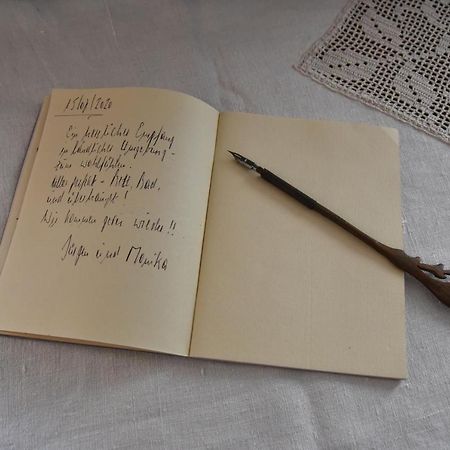 15/07/2020
Ein herzlicher Empfang
in ländlicher Umgebung -
zum wohlfühlen.
Alles perfekt - Bett, Bad,
und überhaupt!
Wir kommen gerne wieder!!
Jürgen und Monika